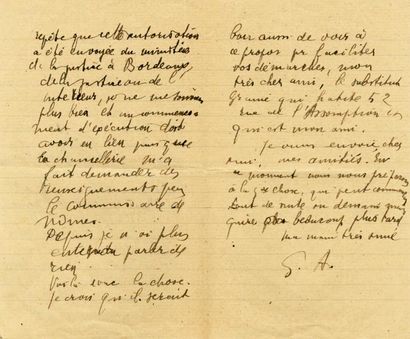 répète que cette autorisation
a été envoyée du ministère
de la justice à Bordeaux,
de la justice ou de l'
intérieur, je ne me souviens
plus bien et un commence-
ment d'exécution doit
avoir eu lieu puisque
la chancellerie m'a
fait demander des
renseignements par
le commissaire de
Nîmes.
Depuis je n'ai plus
entendu parler de
rien.
Voilà donc la chose.
Je crois qu'il serait
bon aussi de voir à
ce propos pr faciliter
vos démarches, mon
très cher ami, le substitut
Granié qui habite 52
rue de l'Assomption et
qui est mon ami.
Je vous envoie, cher
ami, mes amitiés. En
ce moment nous nous préparons
à la gde chose, qui peut commencer
tout de suite ou demain mais
guère plus beaucoup plus tard
Ma main très amie
G. A.